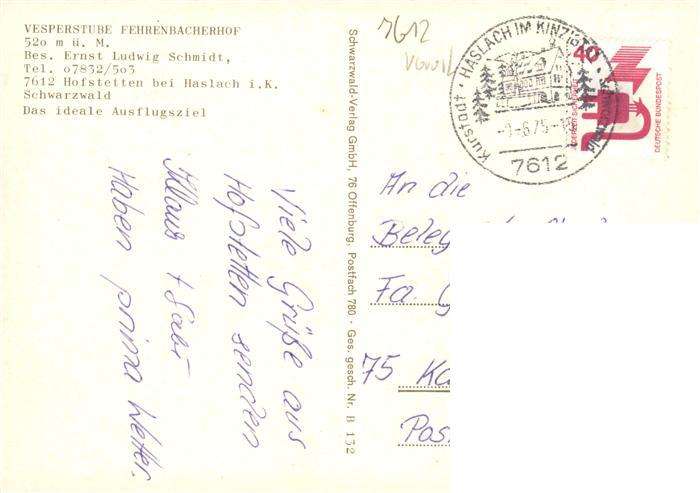 VESPERSTUBE FEHRENBACHERHOF
52o m ü. M.
Bes. Ernst Ludwig Schmidt,
Tel. o7832/5o3
7612 Hofstetten bei Haslach i.K.
Schwarzwald
Das ideale Ausflugsziel
Viele Grüße aus
Hofstetten senden
Klaus + Gabi
Haben prima Wetter.
Schwarzwald-Verlag GmbH, 76 Offenburg, Postfach 780 · Ges. gesch. Nr. B 132
7612
Kurstadt · HASLACH IM KINZIGTAL
6.75
7612
40
DEUTSCHE BUNDESPOST
An die
Beleg
Fa. G
75 Ka
Pos